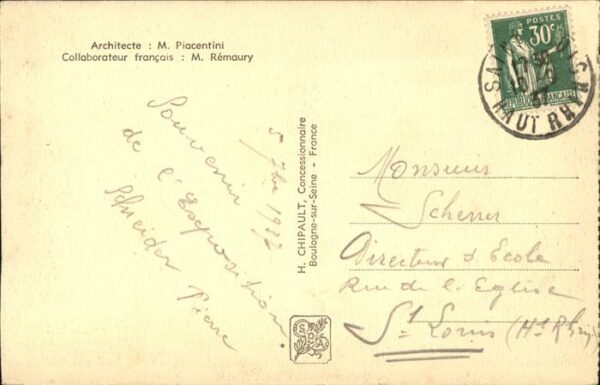 Architecte : M. Piacentini
Collaborateur français : M. Rémaury
POSTES
30c
REPUBLIQUE FRANÇAISE
SAINT
HAUT RHIN
5 7bre 1937
Souvenir
de l'Exposition.
Schneider Pierre
H. CHIPAULT, Concessionnaire
Boulogne-sur-Seine - France
Monsieur
Scherrer
Directeur d'Ecole
Rue de l'Eglise
St Louis (Ht Rhin)